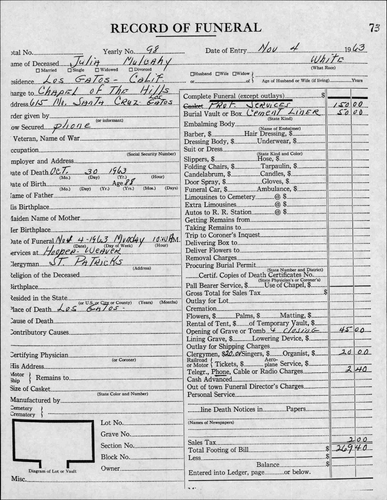 RECORD OF FUNERAL
73
otal No. Yearly No. 98 Date of Entry Nov 4 1963
ame of Deceased Julia Mulvahy White
Married Single Widowed Divorced (What Race)
esidence Los Gatos - Calif Husband Wife Widow of Age of Husband or Wife (if living)
harge to Chapel of The Hills
Complete Funeral (except outlays) $
ddress 615 No. Santa Cruz Gatos
Casket Prof. Services 150 00
Burial Vault or Box Cement Liner 50 00
(State Kind)
rder given by
(or informant)
Embalming Body
(Name of Embalmer)
ow Secured phone
Barber, $ Hair Dressing, $
Veteran, Name of War
Dressing Body, $ Underwear, $
Suit or Dress
(State Kind and Color)
ccupation
(Social Security Number)
Slippers, $ Hose, $
mployer and Address
Folding Chairs, $ Tarpaulin, $
ate of Death Oct. 30 1963
Candelabrum, $ Candles, $
(Mo.) (Day) (Yr.) (Hour)
Door Spray, $ Gloves, $
ate of Birth Age 88
(Mo.) (Day) (Yr.)
Funeral Car, $ Ambulance, $
ame of Father
Limousines to Cemetery @ $
Extra Limousines @ $
is Birthplace
Autos to R. R. Station @ $
Getting Remains from
aiden Name of Mother
Taking Remains to
er Birthplace
Trip to Coroner's Inquest
Delivering Box to
ate of Funeral Nov 4-1963 Monday 10:40 A.M.
(Date) (Day of Week) (Hour)
Deliver Flowers to
ervices at Hooper-Weaver
Removal Charges
Clergyman St. Patricks
(Address)
Procuring Burial Permit
(State Number and District)
eligion of the Deceased
Certif. Copies of Death Certificates No.
(State Physician's or Coroner's)
Pall Bearer Service, $ Use of Chapel, $
esided in the State
(or U.S. or City or County) (Years) (Months)
Gross Total for Sales Tax $
Outlay for Lot
lace of Death Los Gatos
Cremation
ause of Death
Flowers, $ Palms, $ Matting, $
Rental of Tent, $ of Temporary Vault, $
ontributory Causes
Opening of Grave or Tomb &amp; closing 45 00
Lining Grave, $ Lowering Device, $
Outlay for Shipping Charges
ertifying Physician
(or Coroner)
Clergymen, $20.00 Singers, $ Organist, $ 20 00
is Address
Railroad or Motor Tickets, $ Aero-plane Service, $
Motor Ship Remains to
Telegr., Phone, Cable or Radio Charges $ 2 40
Cash Advanced
ize of Casket
(State Color and Number)
Out of town Funeral Director's Charge
Manufactured by
Personal Service
Cemetery
Crematory
line Death Notices in Papers
(Names of Newspapers)
Lot No.
Grave No.
Section No. Sales Tax 2 00
Block No. Total Footing of Bill $ 269 40
Less
Owner Balance $
Diagram of Lot or Vault
Entered into Ledger, page or below.
Misc.